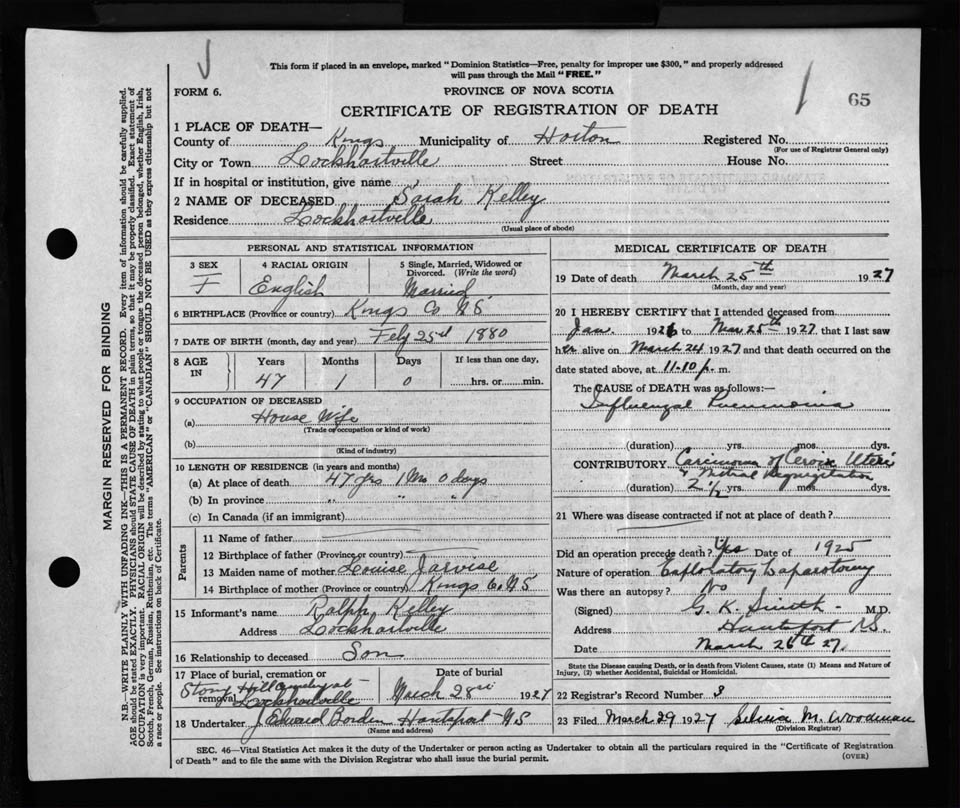 This form if placed in an envelope, marked "Dominion Statistics—Free, penalty for improper use $300," and properly addressed
will pass through the Mail "FREE."
FORM 6.
PROVINCE OF NOVA SCOTIA
65
CERTIFICATE OF REGISTRATION OF DEATH
1 PLACE OF DEATH—
County of Kings Municipality of Horton Registered No.
(For use of Registrar General only)
City or Town Lockhartville Street House No.
If in hospital or institution, give name
2 NAME OF DECEASED Sarah Kelley
Residence Lockhartville
(Usual place of abode)
PERSONAL AND STATISTICAL INFORMATION
3 SEX 4 RACIAL ORIGIN 5 Single, Married, Widowed or
Divorced. (Write the word)
F English Married
6 BIRTHPLACE (Province or country) Kings Co NS.
7 DATE OF BIRTH (month, day and year) Feby 25rd 1880
8 AGE IN Years Months Days If less than one day,
47 1 0 hrs. or min.
9 OCCUPATION OF DECEASED
(a) House Wife
(Trade or occupation or kind of work)
(b)
(Kind of industry)
10 LENGTH OF RESIDENCE (in years and months)
(a) At place of death 47 yrs 1 Mo 0 days
(b) In province " " "
(c) In Canada (if an immigrant)
Parents
11 Name of father
12 Birthplace of father (Province or country)
13 Maiden name of mother Louise Jarvise
14 Birthplace of mother (Province or country) Kings Co. NS
15 Informant's name Ralph Kelley
Address Lockhartville
16 Relationship to deceased Son
17 Place of burial, cremation or Date of burial
Stony Hill Cemetery at
removal Lockhartville March 28 1927
18 Undertaker J Edward Borden Hantsport NS
(Name and address)
MEDICAL CERTIFICATE OF DEATH
19 Date of death March 25th 1927
(Month, day and year)
20 I HEREBY CERTIFY that I attended deceased from
Jan. 1926 to Mar 25th 1927 that I last saw
her alive on March 24 1927 and that death occurred on the
date stated above, at 11-10 p. m.
The CAUSE of DEATH was as follows:—
Influenzal Pneumonia
(duration) yrs. mos. dys.
CONTRIBUTORY Carcinoma of Cervix Uteri
& Mitral Regurgitation
(duration) 2 1/2 yrs. mos. dys.
21 Where was disease contracted if not at place of death?
Did an operation precede death? Yes Date of 1925
Nature of operation Exploratory Laparotomy
Was there an autopsy? No
(Signed) G. K. Smith M.D.
Address Hantsport N.S.
Date March 26th 27.
State the Disease causing Death, or in death from Violent Causes, state (1) Means and Nature of
Injury, (2) whether Accidental, Suicidal or Homicidal.
22 Registrar's Record Number 8
23 Filed March 29 1927 Selina M. Woodman
(Division Registrar)
SEC. 46—Vital Statistics Act makes it the duty of the Undertaker or person acting as Undertaker to obtain all the particulars required in the "Certificate of Registration
of Death" and to file the same with the Division Registrar who shall issue the burial permit.
(OVER)
MARGIN RESERVED FOR BINDING
N.B.—WRITE PLAINLY WITH UNFADING INK—THIS IS A PERMANENT RECORD. Every item of information should be carefully supplied.
AGE should be stated EXACTLY. PHYSICIANS should STATE CAUSE OF DEATH in plain terms, so that it may be properly classified. Exact statement of
OCCUPATION is very important. RACIAL ORIGIN will be described by stating to what people or tongue the deceased person belonged, whether English, Irish,
Scotch, French, German, Russian, Ruthenian, etc. The terms "AMERICAN" or "CANADIAN" SHOULD NOT BE USED as they express citizenship but not
a race or people. See instructions on back of Certificate.